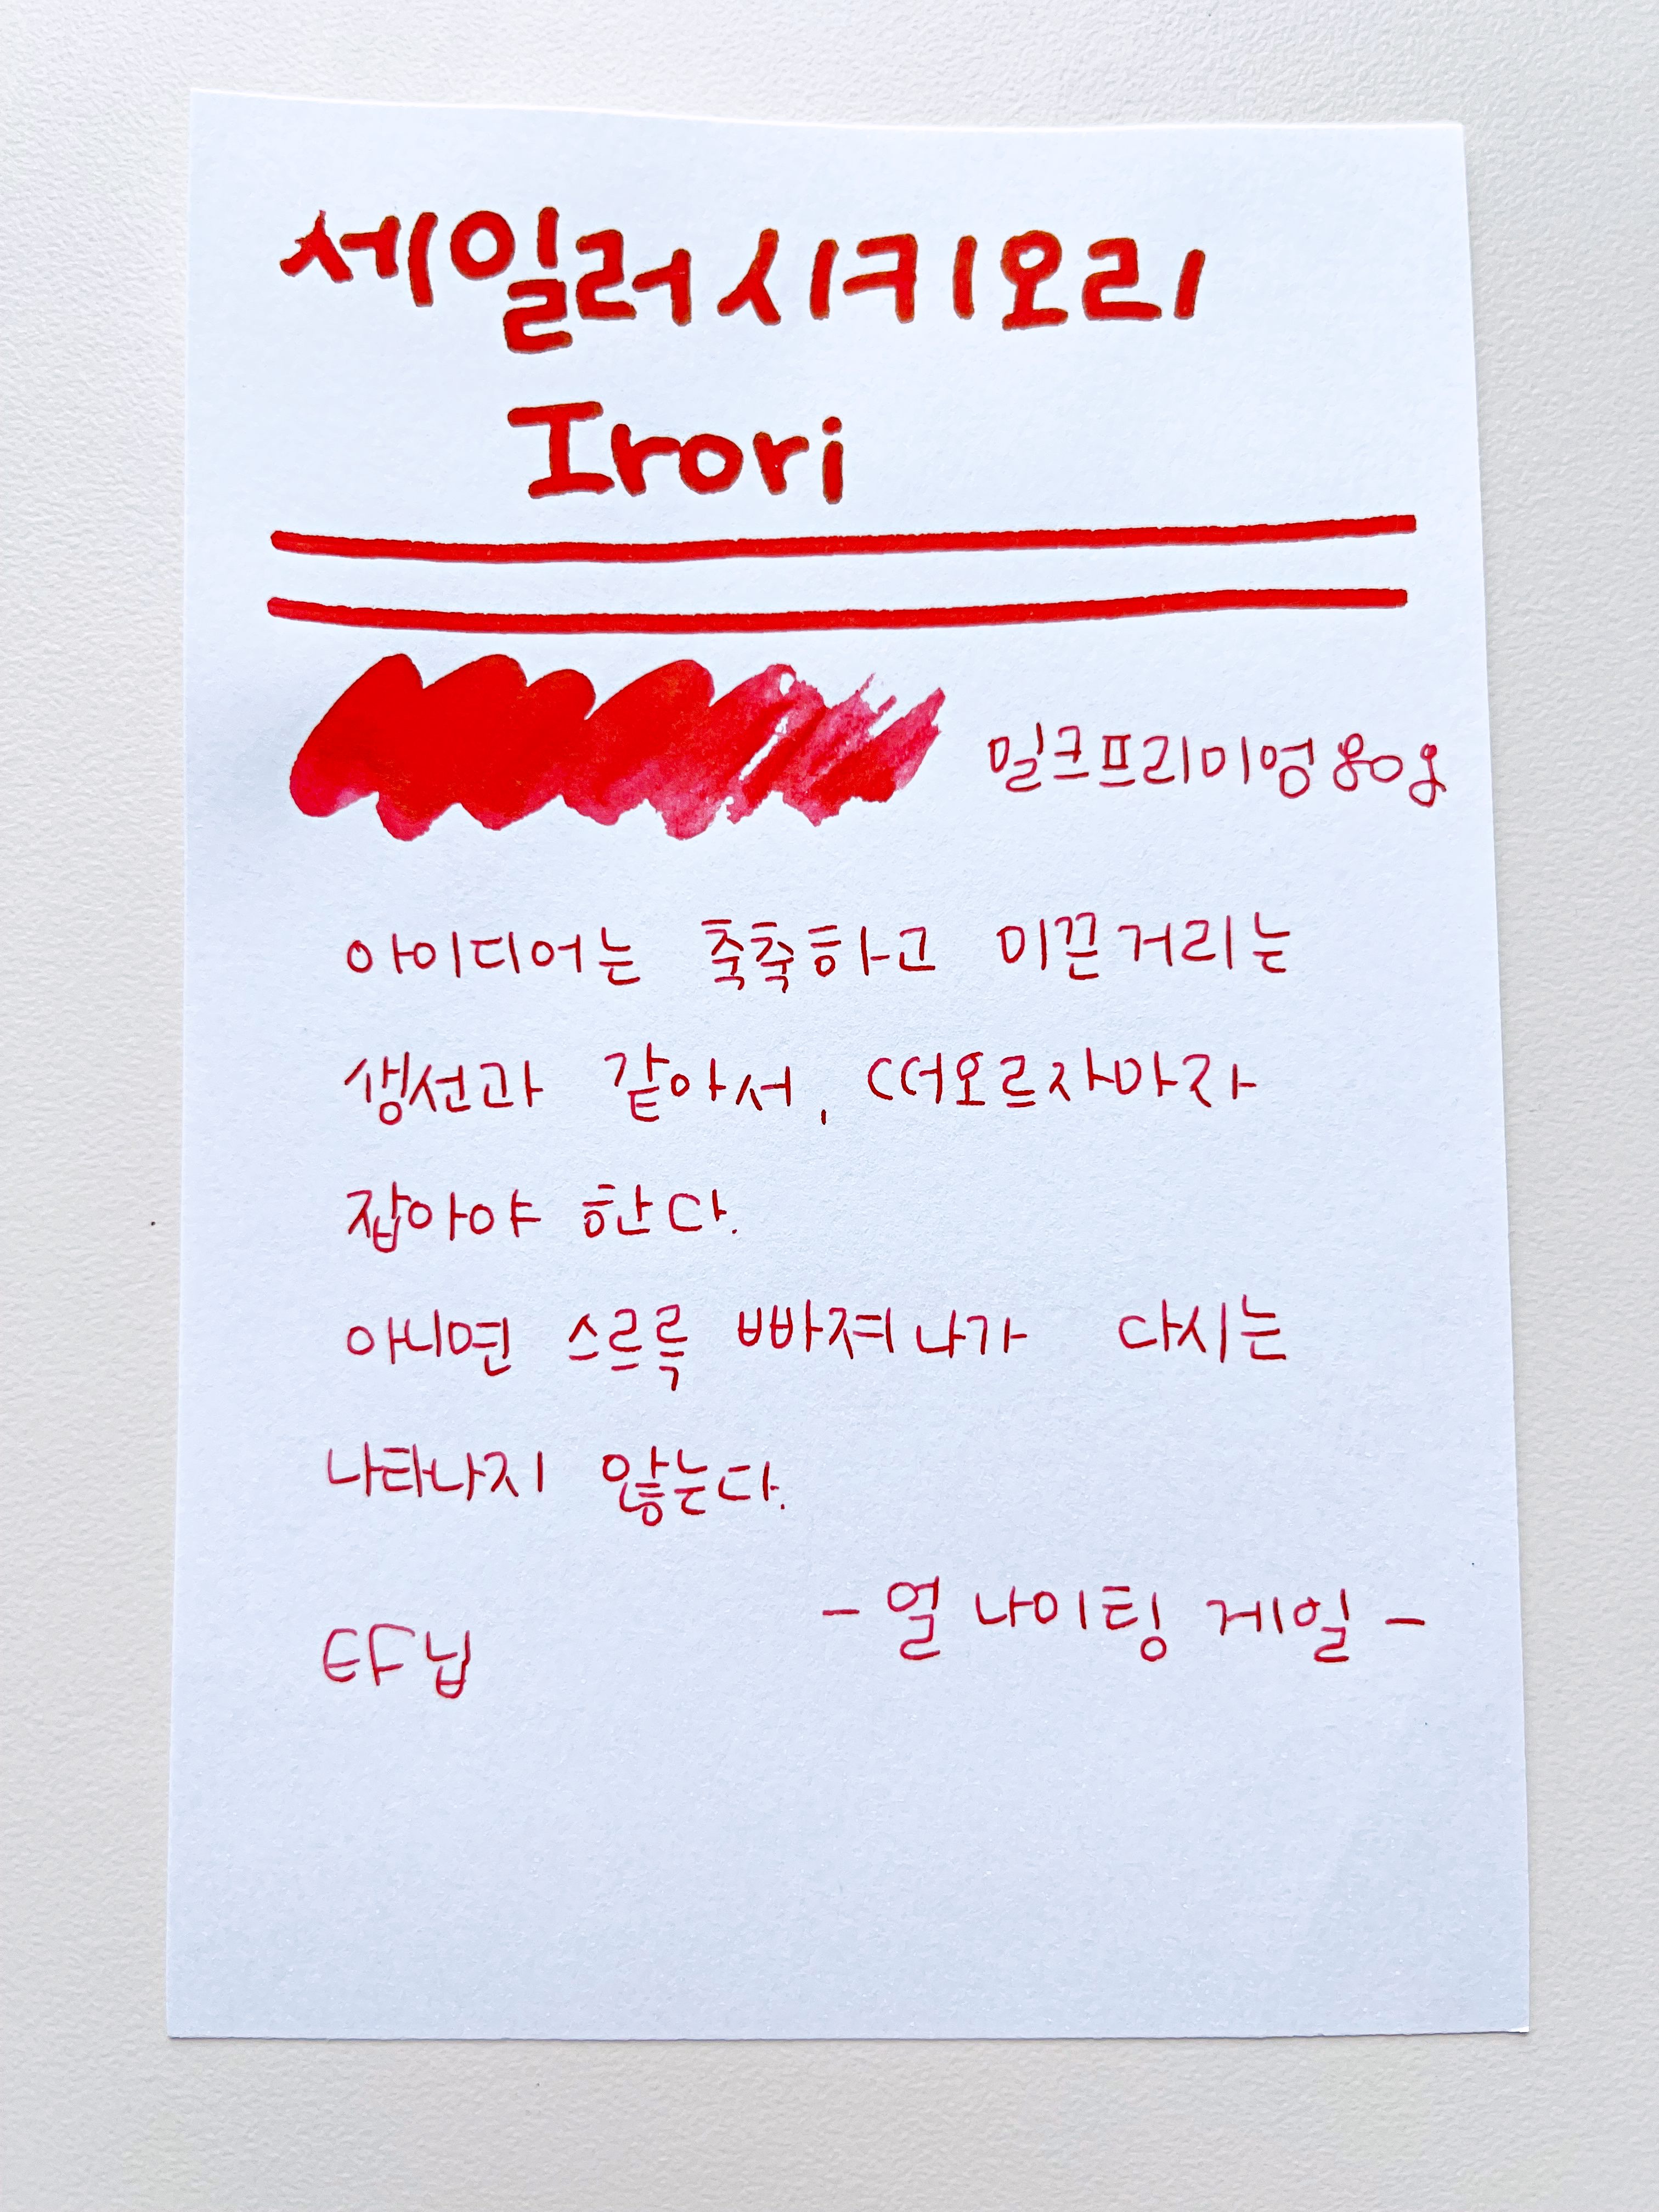 세일러 시키오리
Irori
밀크프리미엄 80g
아이디어는 축축하고 미끈거리는
생선과 같아서, 떠오르자마자
잡아야 한다.
아니면 스르륵 빠져나가 다시는
나타나지 않는다.
- 얼 나이팅 게일 -
EF닙